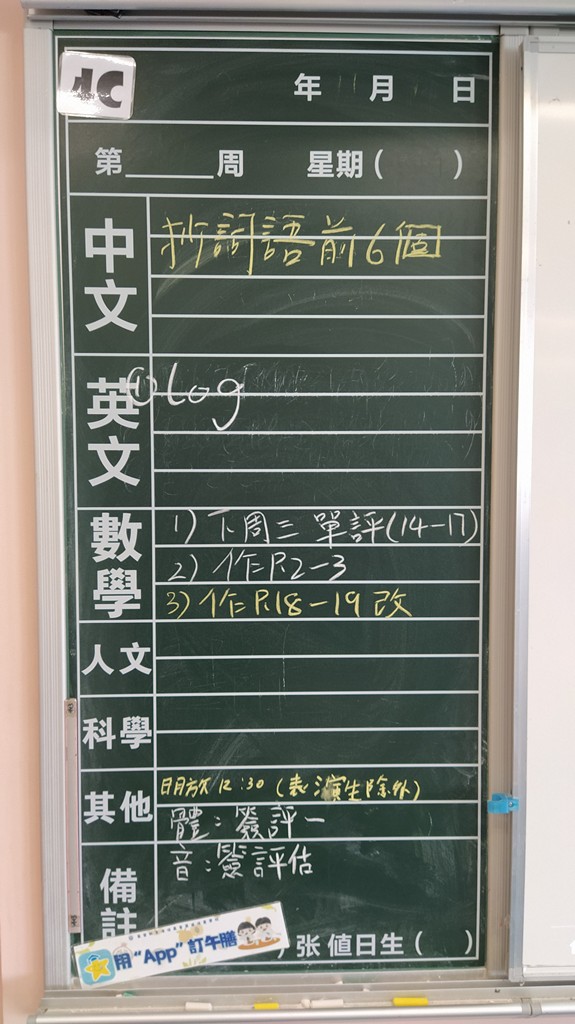 4C
年 月 日
第______周 星期( )
中文 抄詞語前6個
英文 ①Log
數學 1) 下周三 單評(14-17)
2) 作二P.2-3
3) 作二P.18-19 改
人文
科學
其他 明放12:30(表演生除外)
體:簽評一
備註 音:簽評估
用“App”訂午膳
)张 值日生( )